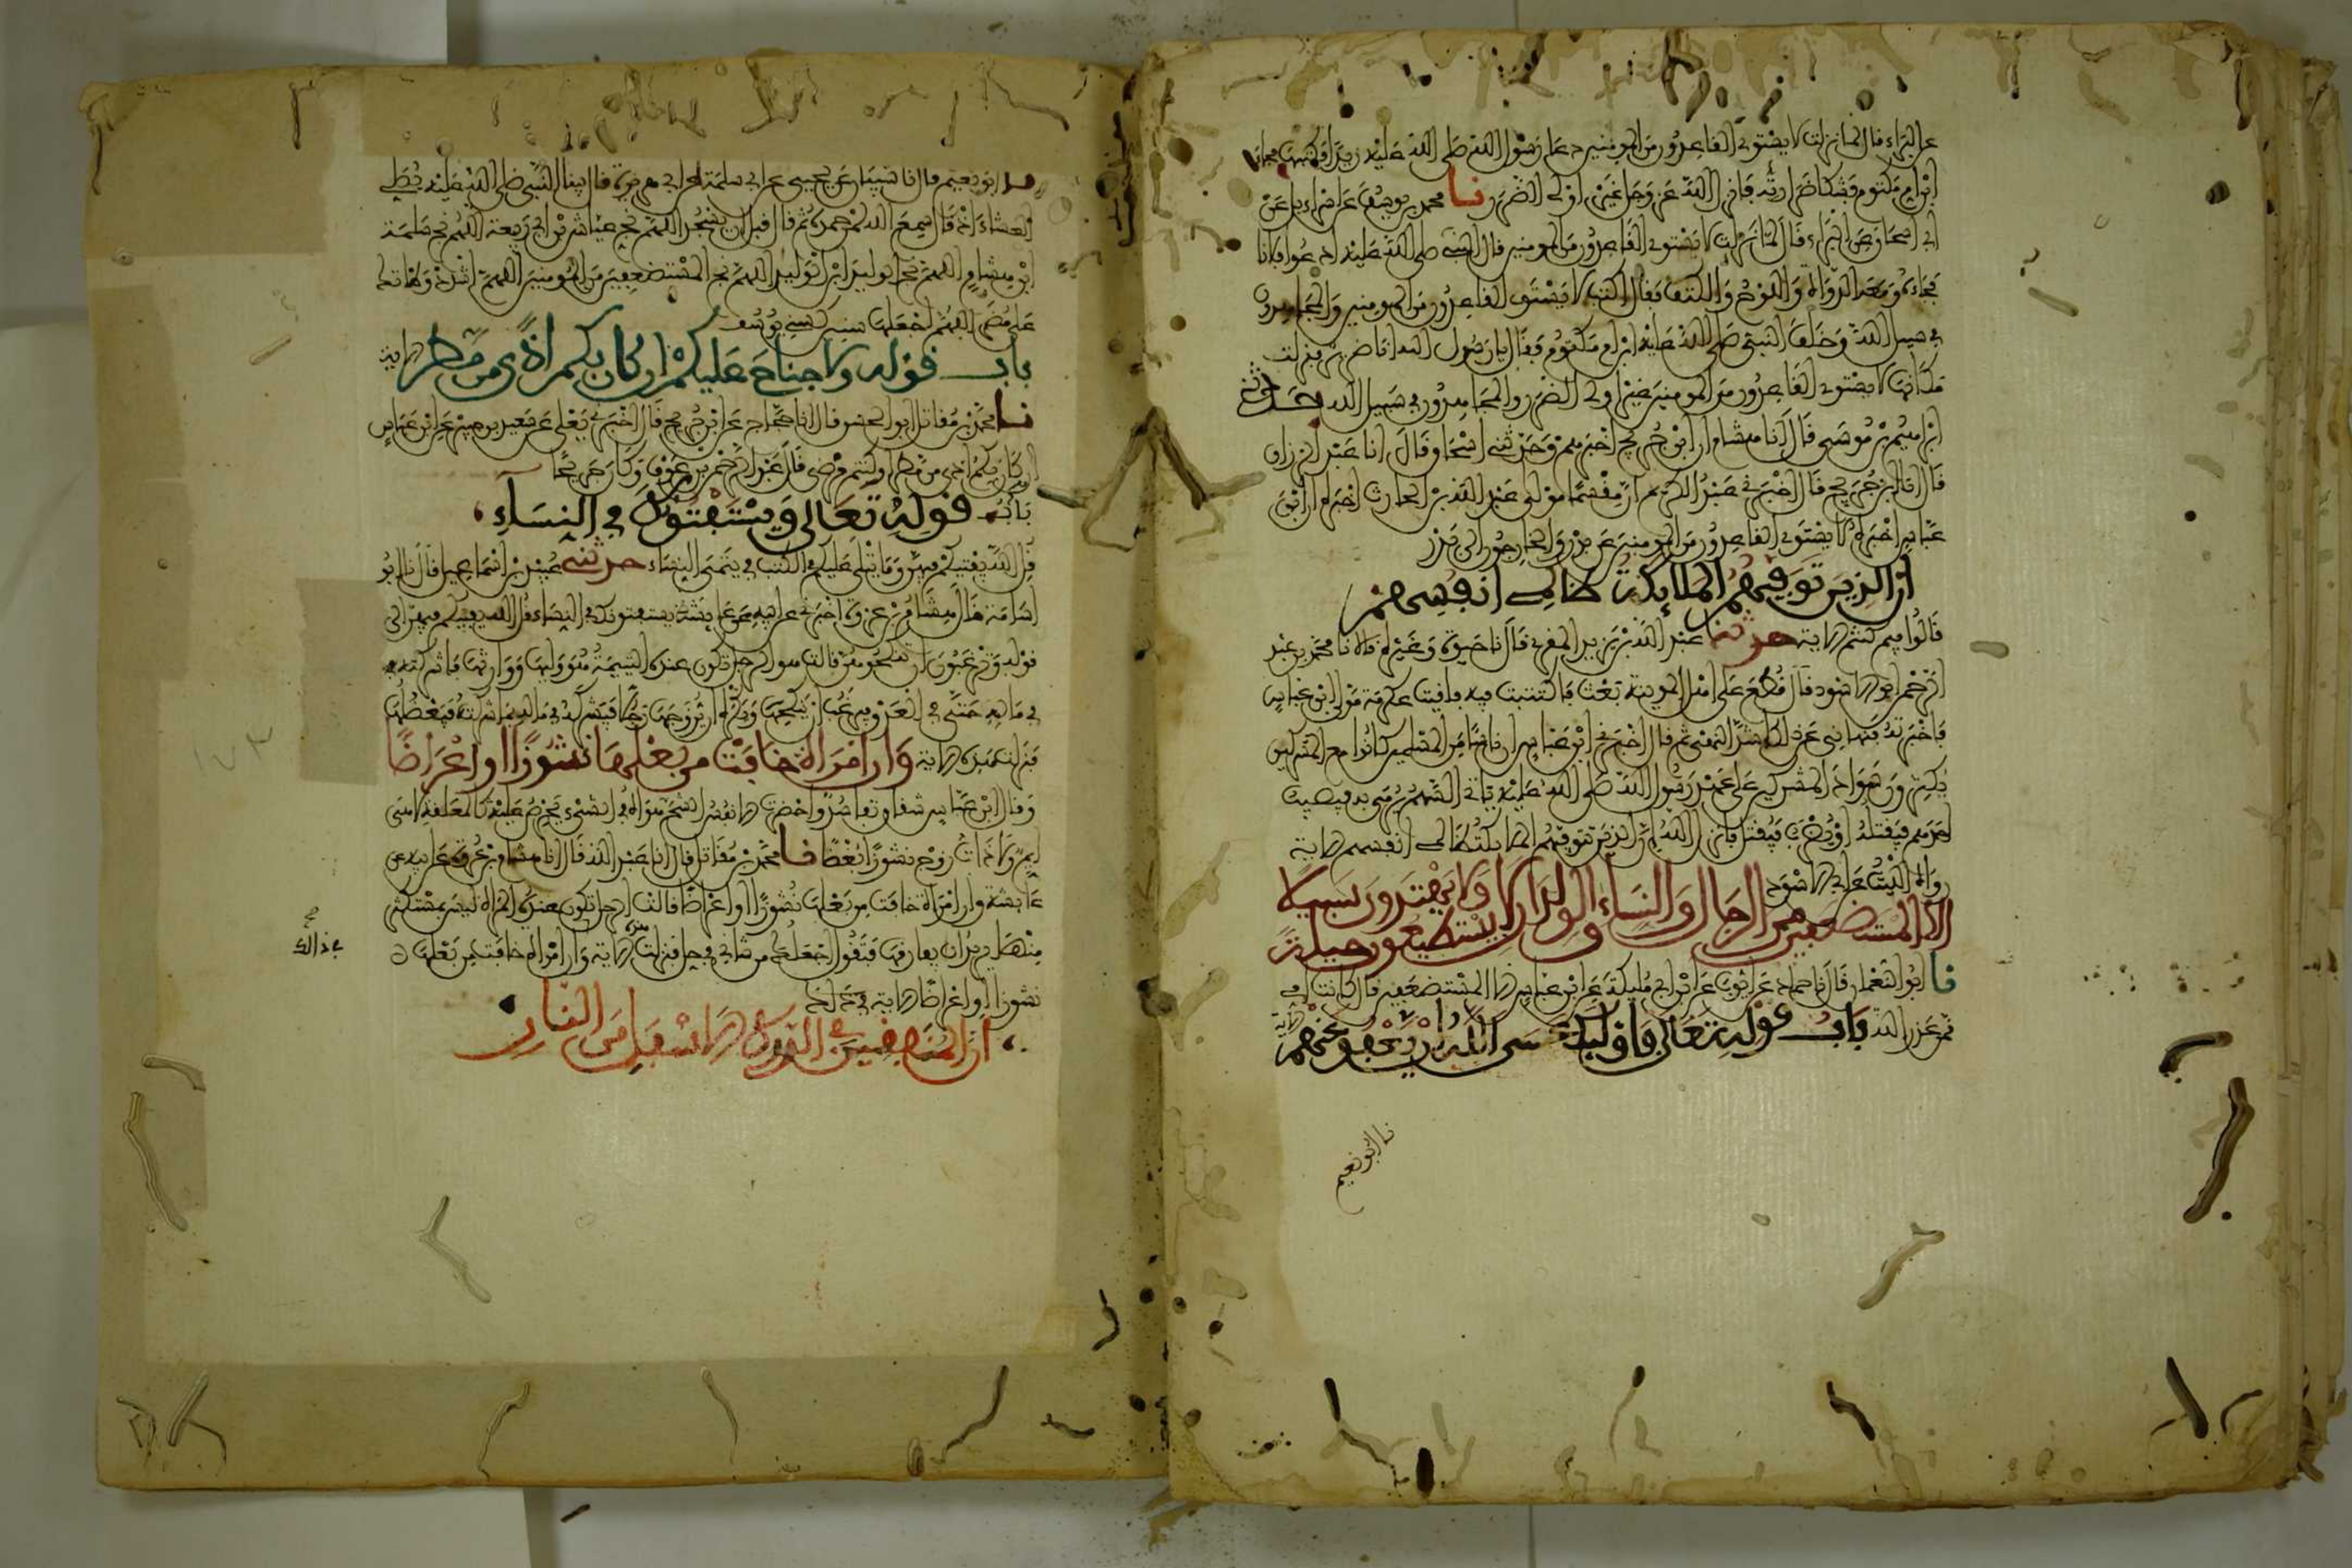 عن البراء قال لما نزلت لا يستوي القاعدون من المومنين دعا رسول الله صلى الله عليه زيدا فكتبها فجاء
ابن ام مكتوم فشكا ضرارته فانزل الله عز وجل غير اولى الضرر نا محمد بن يوسف عن اسراءيل عن
ابي اسحاق عن البراء قال لما نزلت لا يستوي القاعدون من المومنين قال النبي صلى الله عليه ادعوا فلانا
فجاءه ومعه الدواة واللوح والكتف فقال اكتب لا يستوي القاعدون من المومنين والمجاهدون
في سبيل الله وخلف النبي صلى الله عليه ابن ام مكتوم فقال يا رسول الله انا ضرير فنزلت
مكانها لا يستوي القاعدون من المومنين غير اولى الضرر والمجاهدون في سبيل الله حدثني
ابراهيم بن موسى قال انا هشام ان ابن جريج اخبرهم وحدثني اسحاق قال انا عبد الرزاق
قال انا ابن جريج قال اخبرني عبد الكريم ان مقسما مولى عبد الله بن الحارث اخبره ان ابن
عباس اخبره لا يستوي القاعدون من المومنين عن بدر والخارجون الى بدر
ان الذين توفيهم الملايكة ظالمي انفسهم
قالوا فيم كنتم الاية حدثنا عبد الله بن يزيد المقرئ قال نا حيوة وغيره قالا نا محمد بن عبد
الرحمن ابو الاسود قال قطع على اهل المدينة بعث فاكتتبت فيه فلقيت عكرمة مولى ابن عباس
فاخبرته فنهاني عن ذلك اشد النهي ثم قال اخبرني ابن عباس ان ناسا من المسلمين كانوا مع المشركين
يكثرون سواد المشركين على عهد رسول الله صلى الله عليه ياتي السهم يرمى به فيصيب
احدهم فيقتله او يضرب فيقتل فانزل الله ان الذين توفيهم الملايكة ظالمي انفسهم الاية
رواه الليث عن ابي الاسود
الا المستضعفين من الرجال والنساء والولدان لا يستطيعون حيلة ولا يهتدون سبيلا
نا ابو النعمان قال نا حماد عن ايوب عن ابن ابي مليكة عن ابن عباس الا المستضعفين قال كانت امي
ممن عذر الله باب قوله تعالى فاوليك عسى الله ان يعفو عنهم الاية
نا ابو نعيم
نا ابو نعيم قال نا شيبان عن يحيى عن ابي سلمة عن ابي هريرة قال بينا النبي صلى الله عليه يصلي
العشاء اذ قال سمع الله لمن حمده ثم قال قبل ان يسجد اللهم نج عياش بن ابي ربيعة اللهم نج سلمة
ابن هشام اللهم نج الوليد ابن الوليد اللهم نج المستضعفين من المومنين اللهم اشدد وطاتك
على مضر اللهم اجعلها سنين كسني يوسف
باب قوله ولا جناح عليكم ان كان بكم اذى من مطر الاية
نا محمد بن مقاتل ابو الحسن قال انا حجاج عن ابن جريج قال اخبرني يعلى عن سعيد بن جبير عن ابن عباس
ان كان بكم اذى من مطر او كنتم مرضى قال عبد الرحمن بن عوف وكان جريحا
باب قوله تعالى ويستفتونك في النساء
قل الله يفتيكم فيهن وما يتلى عليكم في الكتب في يتمى النساء حدثني عبيد بن اسماعيل قال نا ابو
اسامة قال هشام بن عروة اخبرني عن ابيه عن عايشة يستفتونك في النساء قل الله يفتيكم فيهن الى
قوله وترغبون ان تنكحوهن قالت هو الرجل تكون عنده اليتيمة هو وليها ووارثها فاشركته
في ماله حتى في العذق فيرغب ان ينكحها ويكره ان يزوجها رجلا فيشركه في ماله بما شركته فيعضلها
فنزلت هذه الاية وان امراة خافت من بعلها نشوزا او اعراضا
وقال ابن عباس شقاق تفاسد واحضرت الانفس الشح هواه في الشيء يحرص عليه كالمعلقة لا هي
ايم ولا ذات زوج نشوزا بغضا نا محمد بن مقاتل قال انا عبد الله قال انا هشام بن عروة عن ابيه عن
عايشة وان امراة خافت من بعلها نشوزا او اعراضا قالت الرجل تكون عنده المراة ليس بمستكثر
منها يريد ان يفارقها فتقول اجعلك من شاني في حل فنزلت هذه الاية وان امراة خافت من بعلها
نشوزا او اعراضا الاية في ذلك
في ذالك
ان المنافقين في الدرك الاسفل من النار